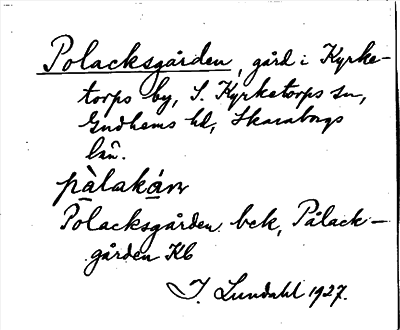 Polacksgården, gård i Kyrke-
torps by, S. Kyrketorps sn,
Gudhems hd, Skaraborgs
län.
pàlakáɴ
Polacksgården bck, Pålack-
gården Kb
I. Lundahl 1927.